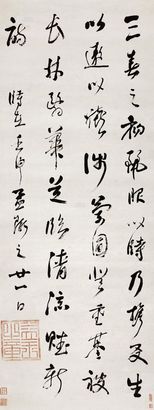 三春之初麗服以時乃攜友生
以遨以嬉涉蘭圃登重基被
長林翳華芝臨清流賦新
詩 時在壬申孟陬之廿一日